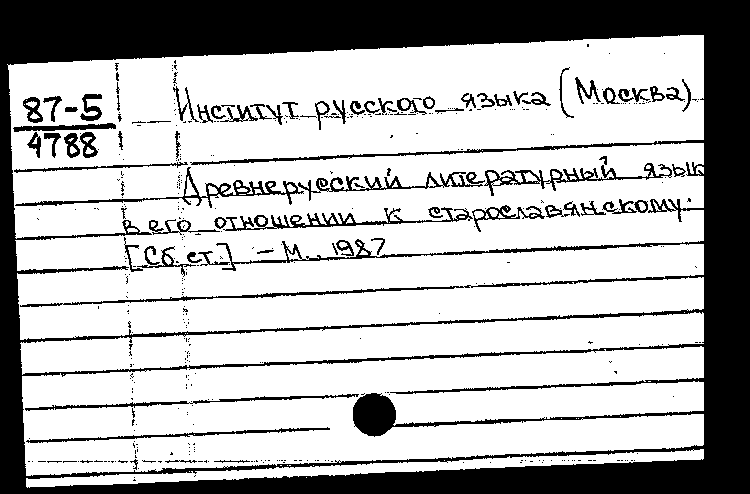 87-5
4788
Институт русского языка (Москва)
Древнерусский литературный язык
в его отношении к старославянскому:
[Сб. ст.] – М., 1987